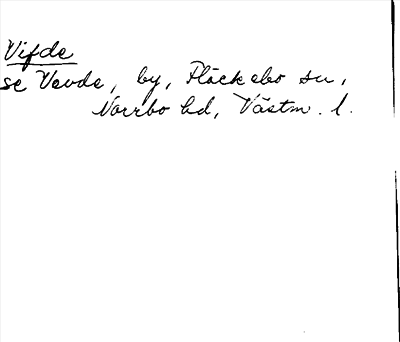 Vifde
se Vevde, by, Fläckebo sn,
Norrbo hd, Västm. l.